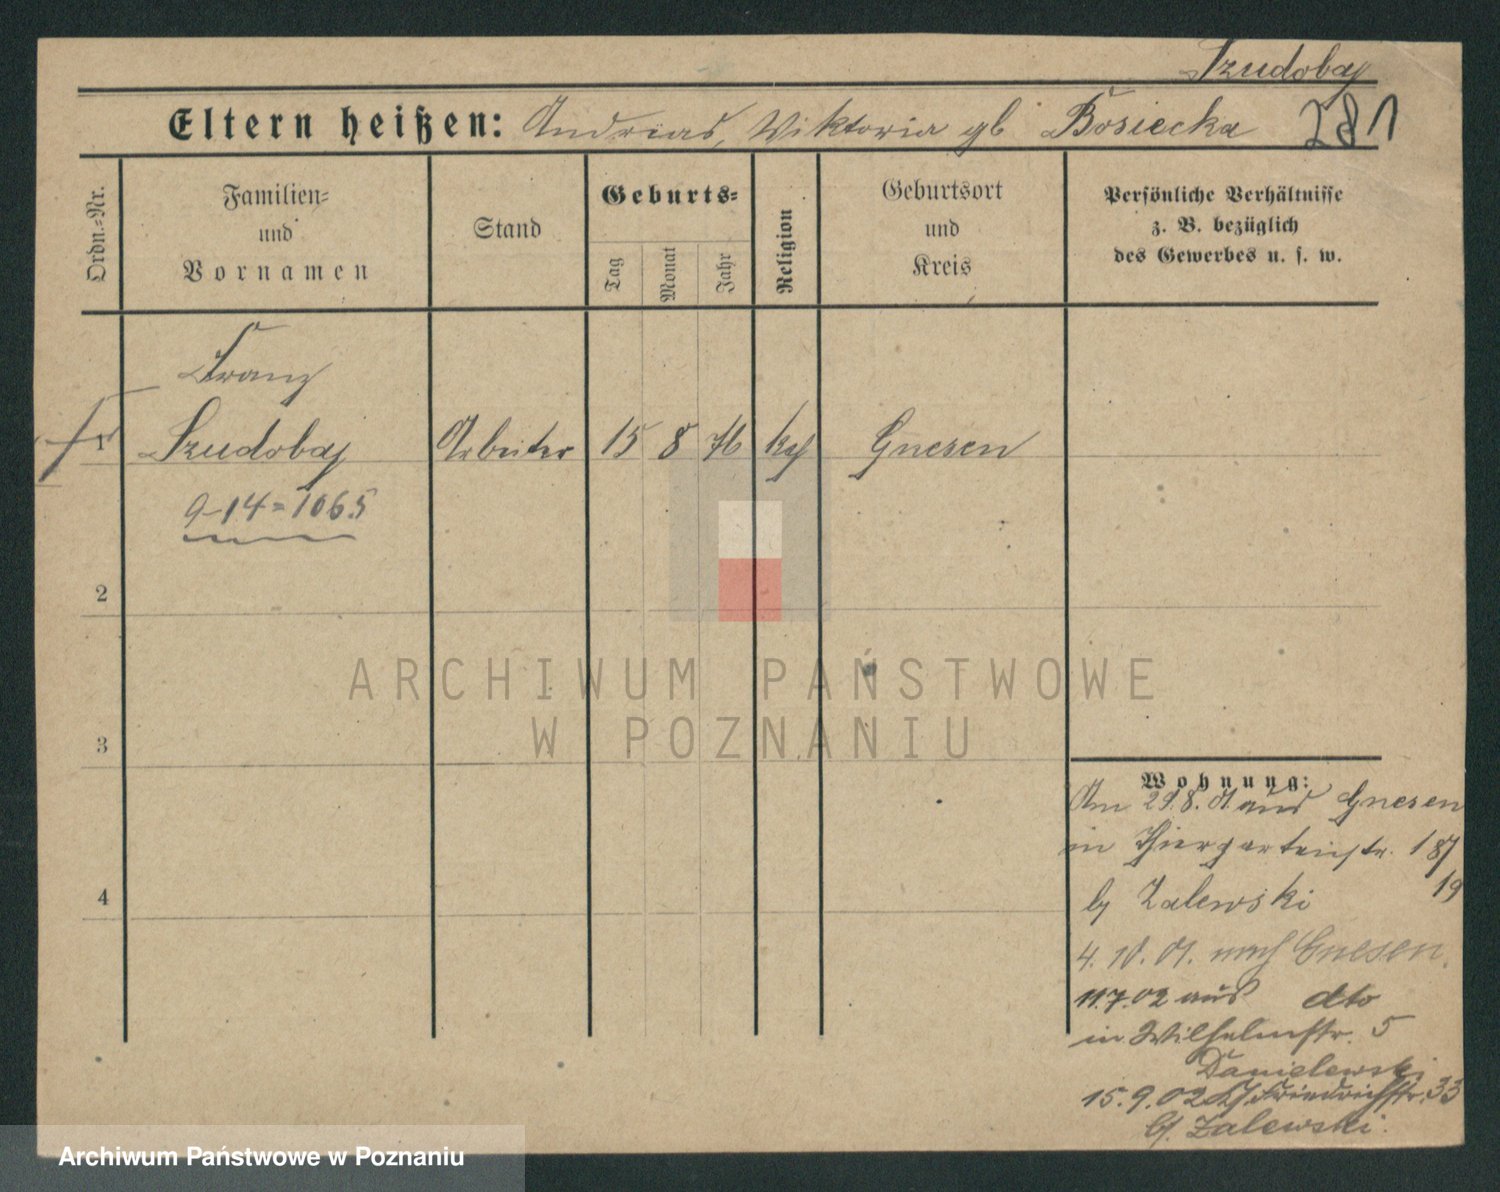 Szudobaj
Eltern heißen: Andreas, Wiktoria gb Bosiecka 281
Ordn.-Nr.
Familien-
und
Vornamen
Stand
Geburts-
Tag
Monat
Jahr
Religion
Geburtsort
und
Kreis
Persönliche Verhältnisse
z. B. bezüglich
des Gewerbes u. s. w.
Franz
1 Szudobaj Arbeiter 15 8 76 kath Gnesen
9-14=1065
2
3
4
ARCHIWUM PAŃSTWOWE
W POZNANIU
Wohnung:
Am 29.8.01 aus Gnesen
in Thiergartenstr.
b/ Zalewski 19
4. 10. 01. nach Gnesen.
11.7.02 aus dto
in Wilhelmstr. 5
Danielewski
15.9.02 Friedrichstr. 33
b/. Zalewski.
Archiwum Państwowe w Poznaniu